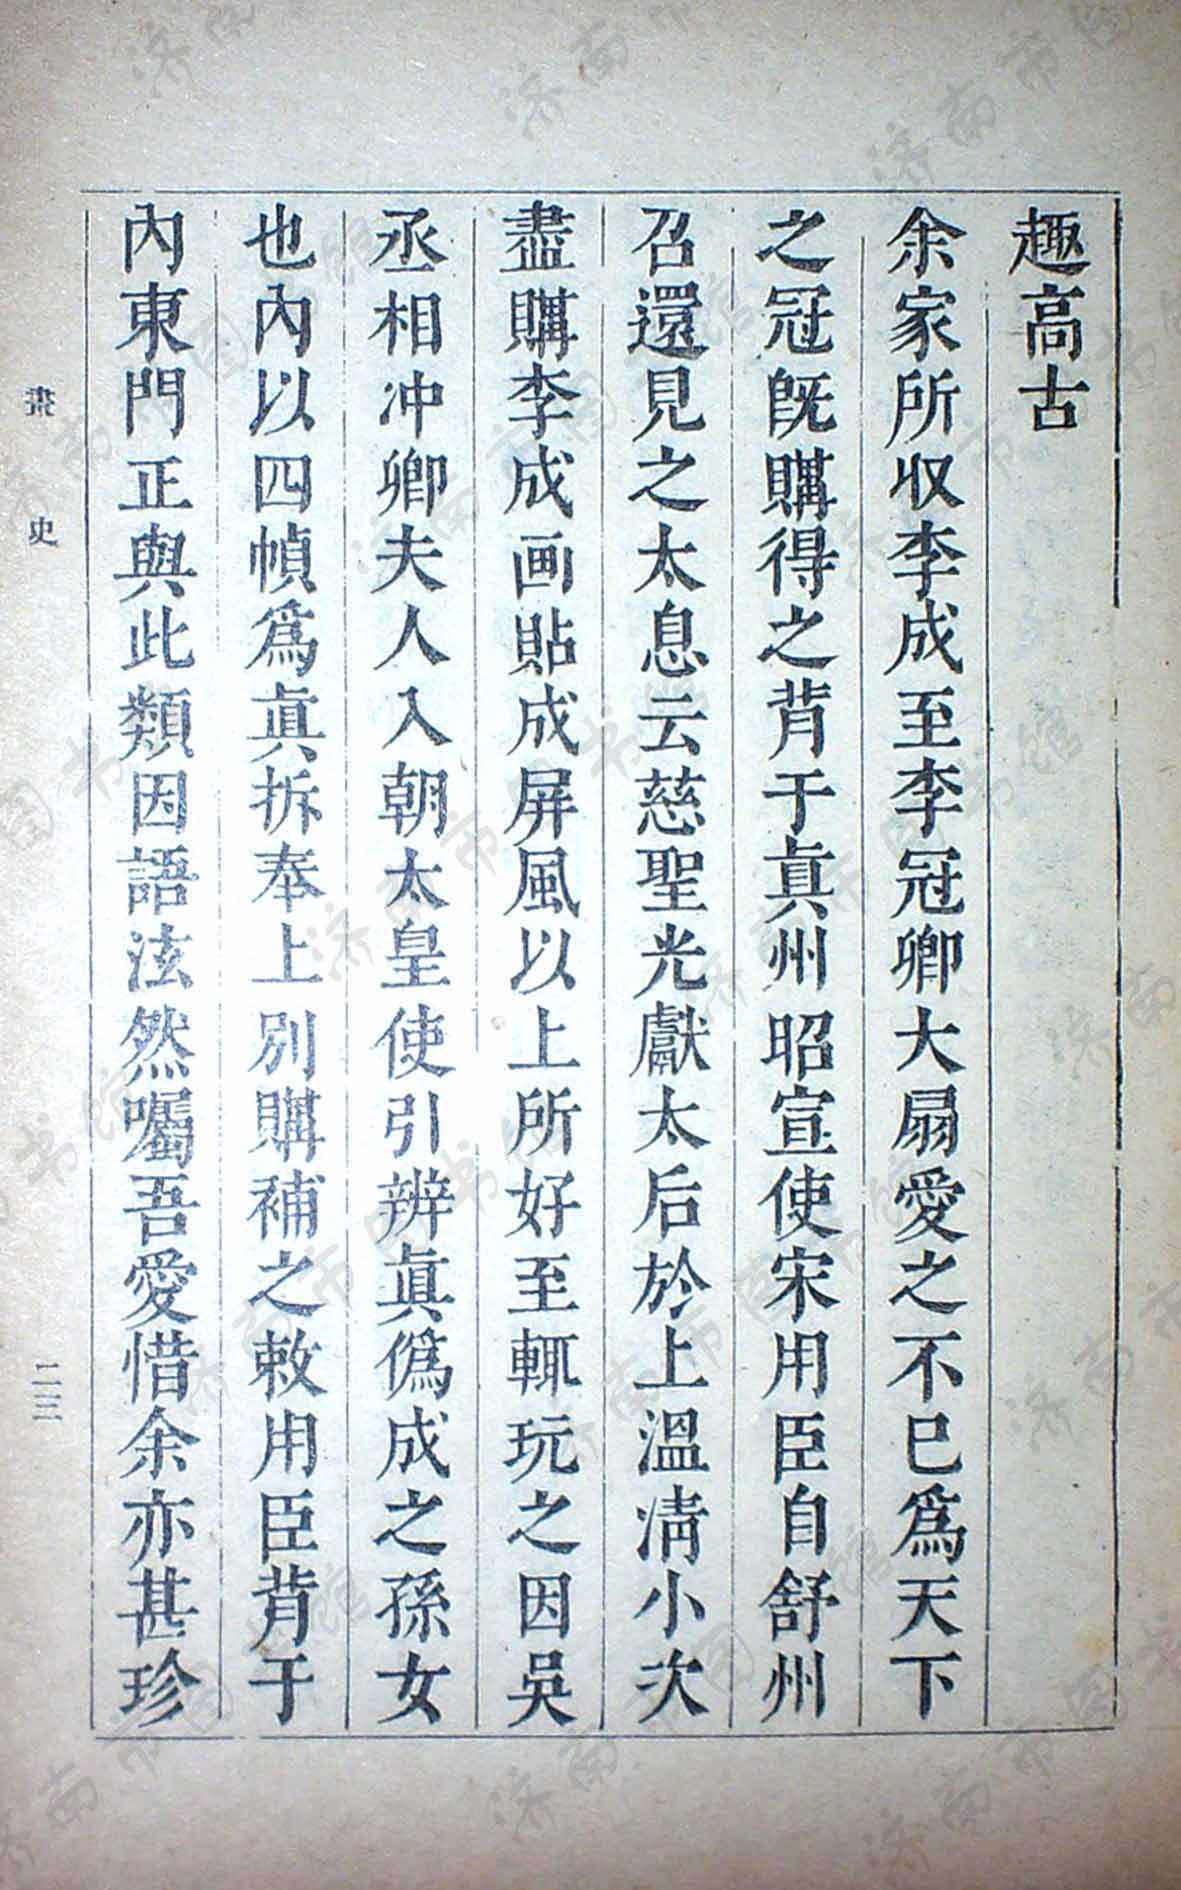 趣高古
余家所収李成至李冠卿大扇愛之不已爲天下
之冠旣購得之背于眞州昭宣使宋用臣自舒州
召還見之太息云慈聖光獻太后於上溫凊小次
盡購李成画貼成屏風以上所好至輒玩之因吳
丞相冲卿夫人入朝太皇使引辨眞僞成之孫女
也內以四幀爲眞拆奉上別購補之敕用臣背于
內東門正與此類因語泫然囑吾愛惜余亦甚珍
畫史
二三
济南市图书馆